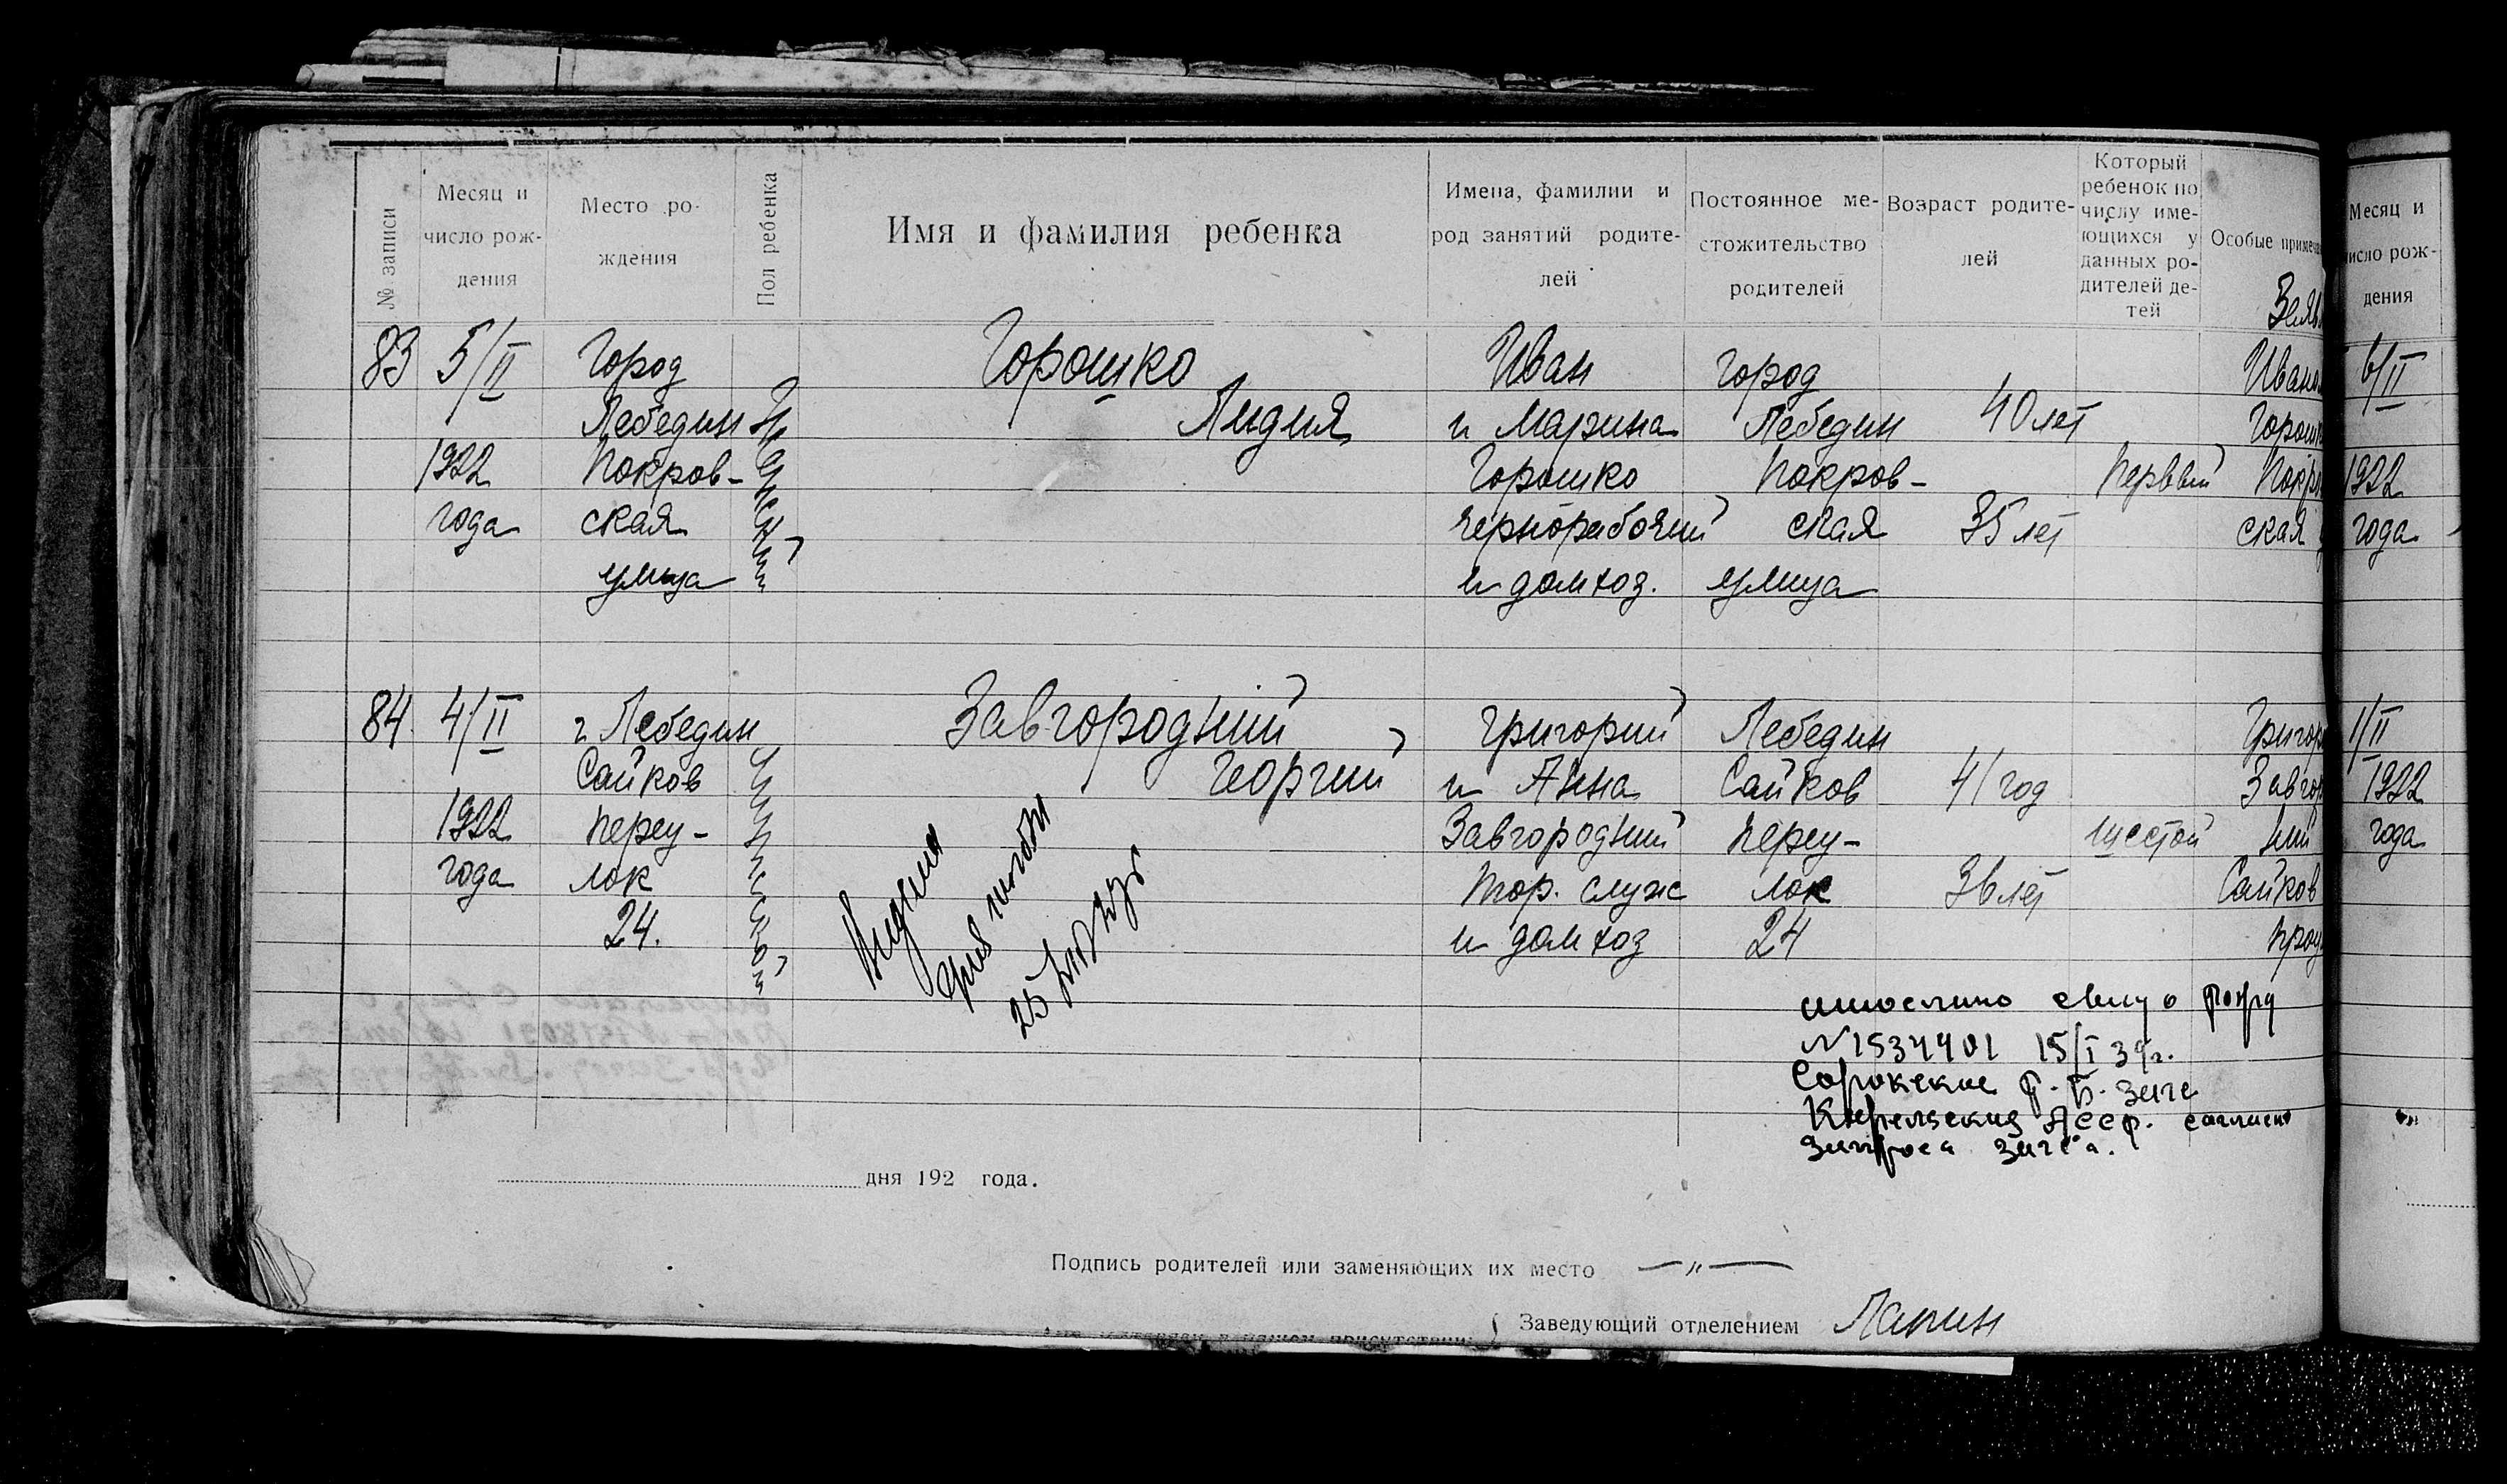 № записи
Месяц и число рождения
Место рождения
Пол ребенка
Имя и фамилия ребенка
Имена, фамилии и род занятий родителей
Постоянное местожительство родителей
Возраст родителей
Который ребенок по числу имеющихся у данных родителей детей
Особые примеча
83
5/II
1922
года
Город
Лебедин
Покров-
ская
улица
Женский
Горошко
Лидия
Иван
и Марина
Горошко
чернорабочий
и домхоз.
город
Лебедин
Покров-
ская
улица
40 лет
35 лет
первый
Заяв
Ивано
Горошк
Покро
ская
84.
4/II
1922
года
г. Лебедин
Сайков
переу-
лок
24.
Мужской
Завгородний
Георгий
Григорий
и Анна
Завгородний
тор. служ
и домхоз
Лебедин
Сайков
переу-
лок
24
41 год
36 лет
шестой
Григор
Завгор
ний
Сайков
25
свид о
№1534401 15/I 39г.
Сорокское Р.Б. загс
Карельския АССР.
запроса загса.
дня 192 года.
Подпись родителей или заменяющих их место —„—
Заведующий отделением Лапин
Месяц и
число рож-
дения
6/II
1922
года
1/II
1922
года